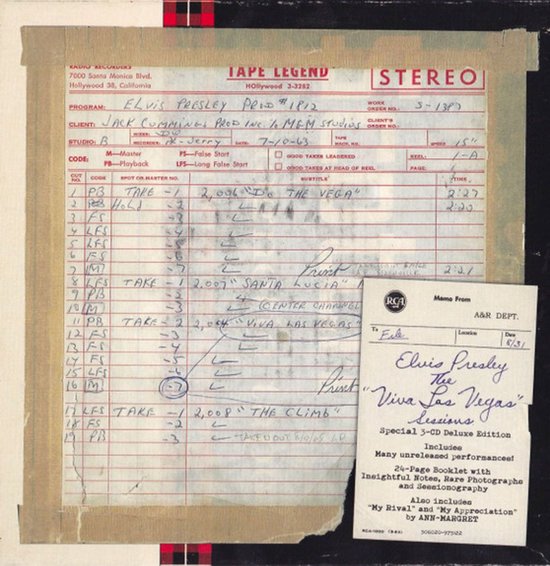 RADIO RECORDERS
7000 Santa Monica Blvd.
Hollywood 38, California
TAPE LEGEND
HOllywood 3-3282
STEREO
PROGRAM: ELVIS PRESLEY PROD #1812
WORK ORDER NO.
CLIENT: JACK CUMMINGS PROD INC. % MGM STUDIOS
CLIENT'S ORDER NO.
STUDIO: B
MIXER: DW
RECORDER: Jerry
DATE: 7-10-63
TAPE MACH. NO.
SPEED 15"
CODE:
M—Master
FS—False Start
PB—Playback
LFS—Long False Start
GOOD TAKES LEADERED
GOOD TAKES AT HEAD OF REEL
REEL: 1-A
PAGE:
CUT NO.
CODE
SPOT OR MASTER NO.
SUBTITLE
TIME
1 PB TAKE -1 2,006 "DO THE VEGA" 2:27
2 PB HOLD -2 2:20
3 FS -3
4 LFS -4
5 LFS -5
6 FS -6
7 (M) -7 Print 2:21
8 LFS TAKE -1 2,007 "SANTA LUCIA"
9 PB -2
10 (M) -3 (CENTER CHANNEL
11 PB TAKE -2 "VIVA LAS VEGAS"
12 FS -3
13 FS -4
14 FS -5
15 LFS -6
16 (M) Print
17 LFS TAKE -1 2,008 "THE CLIMB"
18 FS -2
19 PB -3
RCA
Memo From
A&R DEPT.
To File
Location
Date 8/31
Elvis Presley
The
"Viva Las Vegas"
Sessions
Special 3-CD Deluxe Edition
Includes
Many unreleased performances!
24-Page Booklet with
Insightful Notes, Rare Photographs
and Sessionography
Also includes
"My Rival" and "My Appreciation"
by ANN-MARGRET